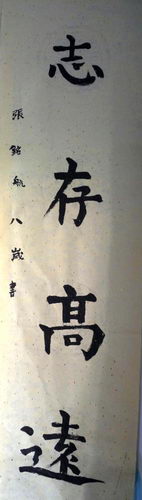 志存高遠
張銘航八歲書